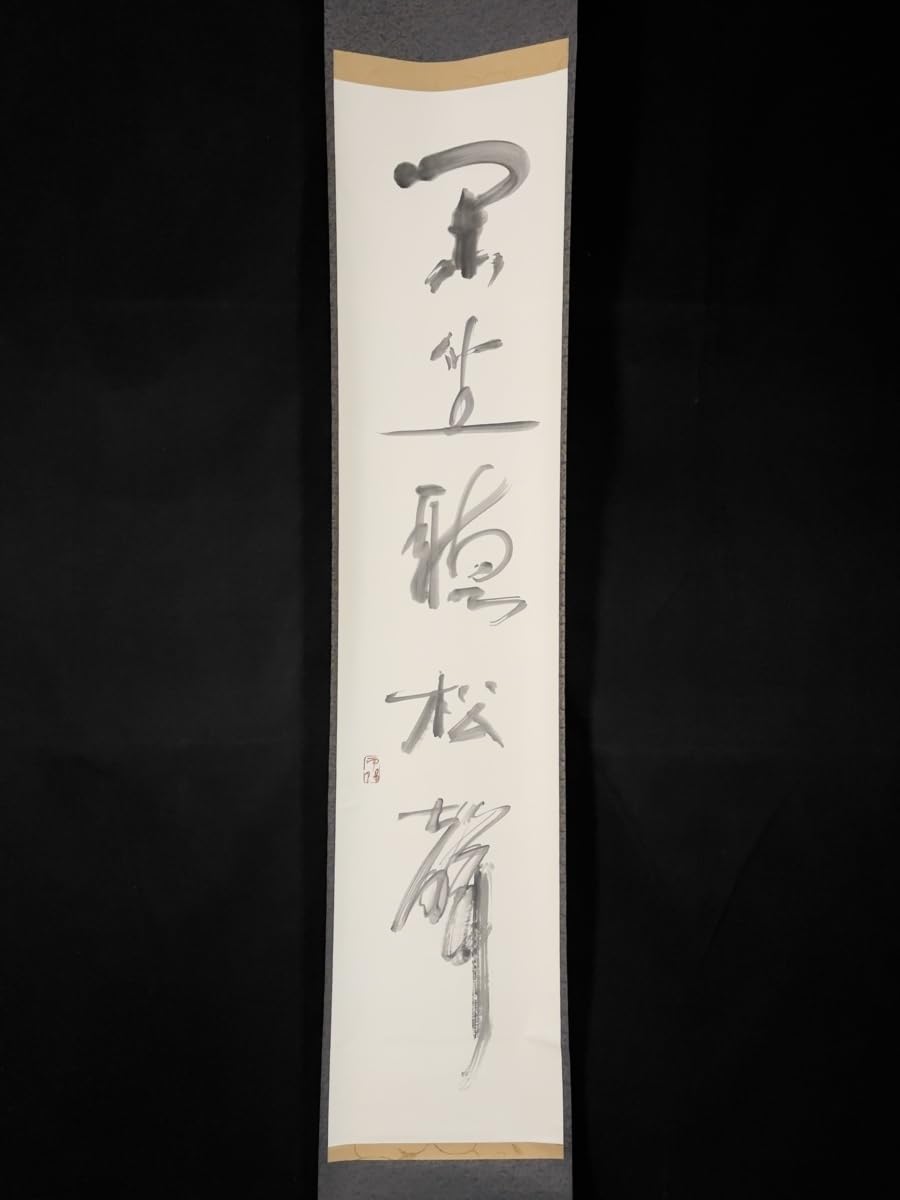 閑坐聴松聲